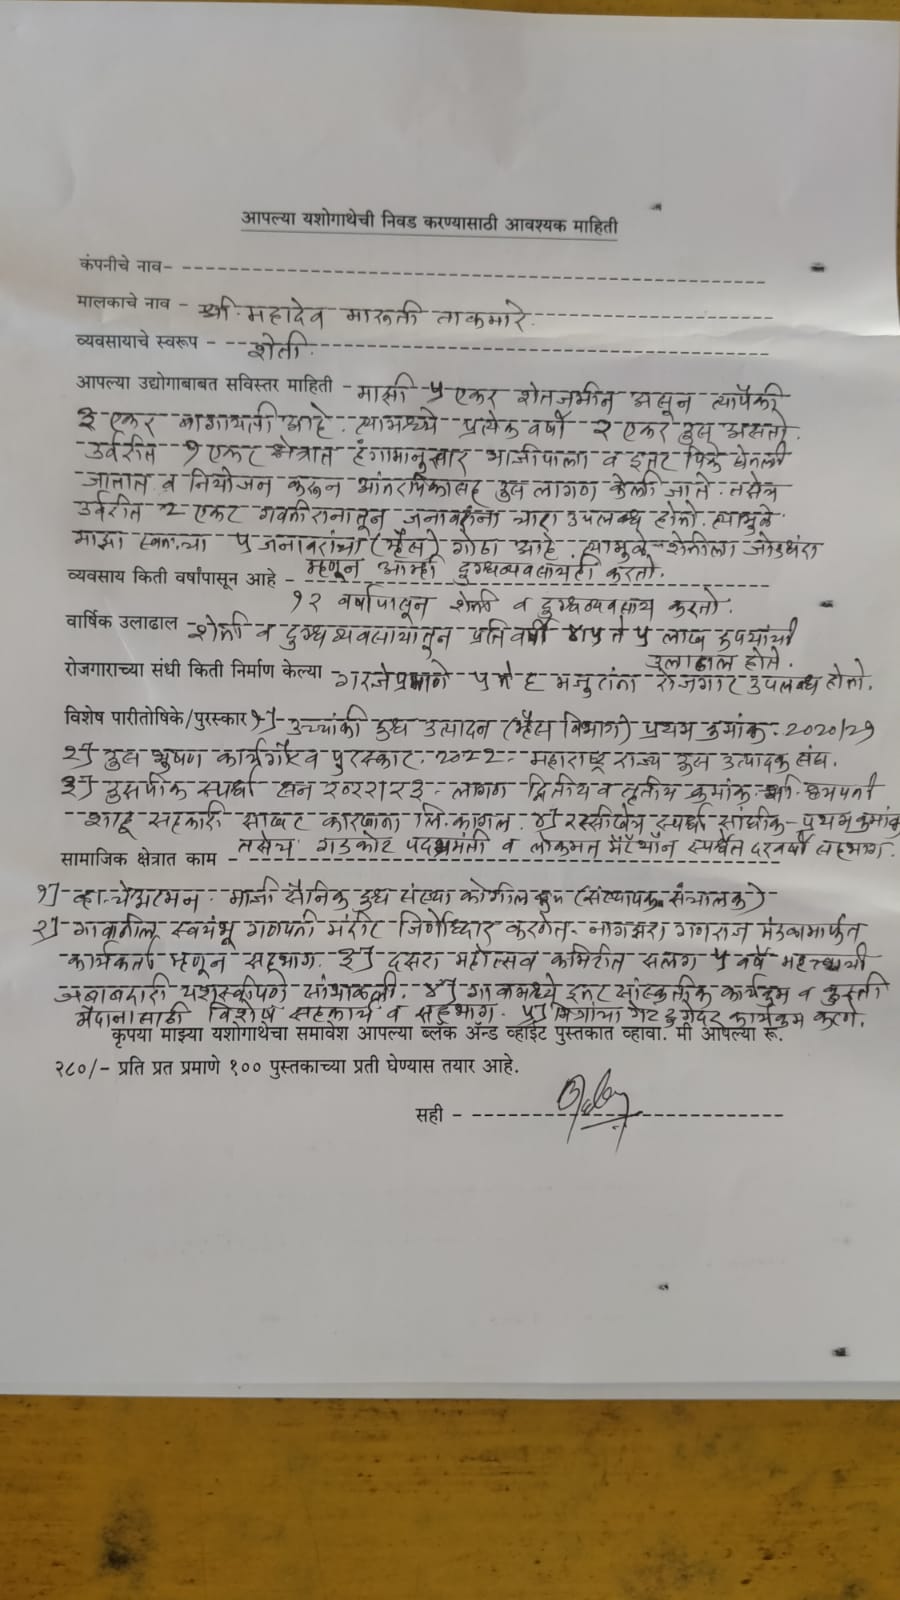 आपल्या यशोगाथेची निवड करण्यासाठी आवश्यक माहिती
कंपनीचे नाव-
मालकाचे नाव - श्री. महादेव मारुती ताकमारे.
व्यवसायाचे स्वरूप - शेती.
आपल्या उद्योगाबाबत सविस्तर माहिती - माझी ५ एकर शेतजमीन असून त्यापैकी
३ एकर बागायती आहे. त्यामध्ये प्रत्येक वर्षी २ एकर ऊस असतो.
उर्वरीत १ एकर क्षेत्रात हंगामानुसार भाजीपाला व इतर पिके घेतली
जातात व नियोजन करून आंतरपिकासह ऊस लागण केली जाते. तसेच
उर्वरीत २ एकर गवती रानातून जनावरांना चारा उपलब्ध होतो. त्यामुळे
माझा स्वतःचा ५ जनावरांचा (म्हैस) गोठा आहे. त्यामुळे शेतीला जोडधंदा
म्हणून आम्ही दुग्धव्यवसायही करतो.
व्यवसाय किती वर्षांपासून आहे -
१२ वर्षापासून शेती व दुग्धव्यवसाय करतो.
वार्षिक उलाढाल शेती व दुग्धव्यवसायातून प्रति वर्षी ४॥५ ते ५ लाख रुपयांची
उलाढाल होते.
रोजगाराच्या संधी किती निर्माण केल्या गरजेप्रमाणे ५ ते ६ मजुरांना रोजगार उपलब्ध होतो.
विशेष पारीतोषिके/पुरस्कार १) उच्चांकी दुध उत्पादन (म्हैस विभाग) प्रथम क्रमांक. 2020/21
२) ऊस भूषण कार्यगौरव पुरस्कार. 2022- महाराष्ट्र राज्य ऊस उत्पादक संघ.
३) ऊसपीक स्पर्धा सन लागण द्वितीय व तृतीय क्रमांक श्री. छत्रपती
शाहू सहकारी साखर कारखाना लि. कागल. ४) रस्सीखेच स्पर्धा सांघीक- प्रथम क्रमांक
तसेच गडकोट पदभ्रमंती व लोकमत मॅरेथॉन स्पर्धेत दरवर्षी सहभाग.
सामाजिक क्षेत्रात काम -
१) व्हा. चेअरमन. माजी सैनिक दुध संस्था (संस्थापक संचालक)
२) गावातील स्वयंभू गणपती मंदीर जिर्णोध्दार करणेत. गणराज मंडळामार्फत
कार्यकर्ता म्हणून सहभाग. ३) दसरा महोत्सव कमिटीत सलग ५ वर्षे महत्वाची
जबाबदारी यशस्वीपणे सांभाळली. ४) गावामध्ये इतर सांस्कृतिक कार्यक्रम व कुस्ती
मैदानासाठी विशेष सहकार्य व सहभाग. ५) मित्रांचा गेट टुगेदर कार्यक्रम करणे.
कृपया माझ्या यशोगाथेचा समावेश आपल्या ब्लॅक अँन्ड व्हाईट पुस्तकात व्हावा. मी आपल्या रू.
२८०/- प्रति प्रत प्रमाणे १०० पुस्तकाच्या प्रती घेण्यास तयार आहे.
सही -